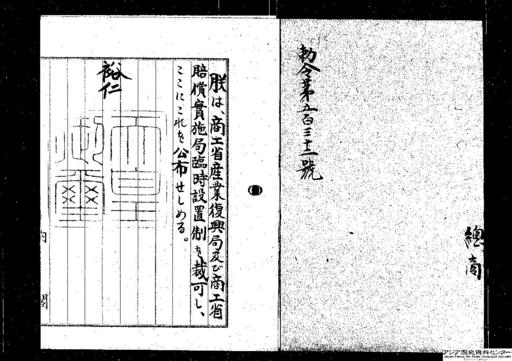 勅令第五百三十二號
總
商
朕は、商工省産業復興局及び商工省
賠償實施局臨時設置制を裁可し、
ここにこれを公布せしめる。
裕仁
内閣
アジア歴史資料センター